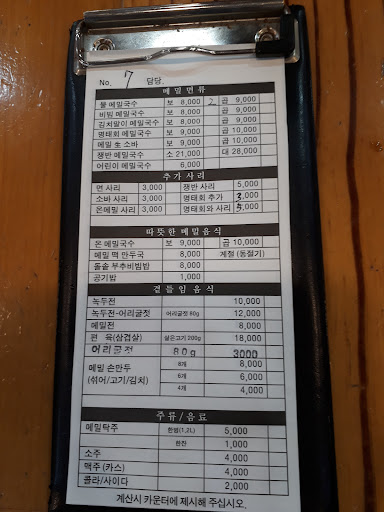 No. 7 담당.
메밀면류
물 메밀국수 보 8,000 2 곱 9,000
비빔 메밀국수 보 8,000 곱 9,000
김치말이 메밀국수 보 8,000 곱 9,000
명태회 메밀국수 보 9,000 곱 10,000
메밀 生 소바 보 9,000 곱 10,000
쟁반 메밀국수 소 21,000 대 28,000
어린이 메밀국수 6,000
추가사리
면 사리 3,000 쟁반 사리 5,000
소바 사리 3,000 명태회 추가 3,000
온메밀 사리 3,000 명태회와 사리 5,000
따뜻한 메밀음식
온 메밀국수 보 9,000 곱 10,000
메밀 떡 만두국 8,000 계절 (동절기)
돌솥 부추비빔밥 8,000
공기밥 1,000
곁들임음식
녹두전 10,000
녹두전-어리굴젓 어리굴젓 80g 12,000
메밀전 8,000
편 육(삼겹살) 삶은고기 200g 18,000
어리굴젓 80g 3000
메밀 손만두 8개 8,000
(섞어/고기/김치) 6개 6,000
4개 4,000
주류/음료
메밀탁주 한병(1,2L) 5,000
한잔 1,000
소주 4,000
맥주 (카스) 4,000
콜라/사이다 2,000
계산시 카운터에 제시해 주십시오.